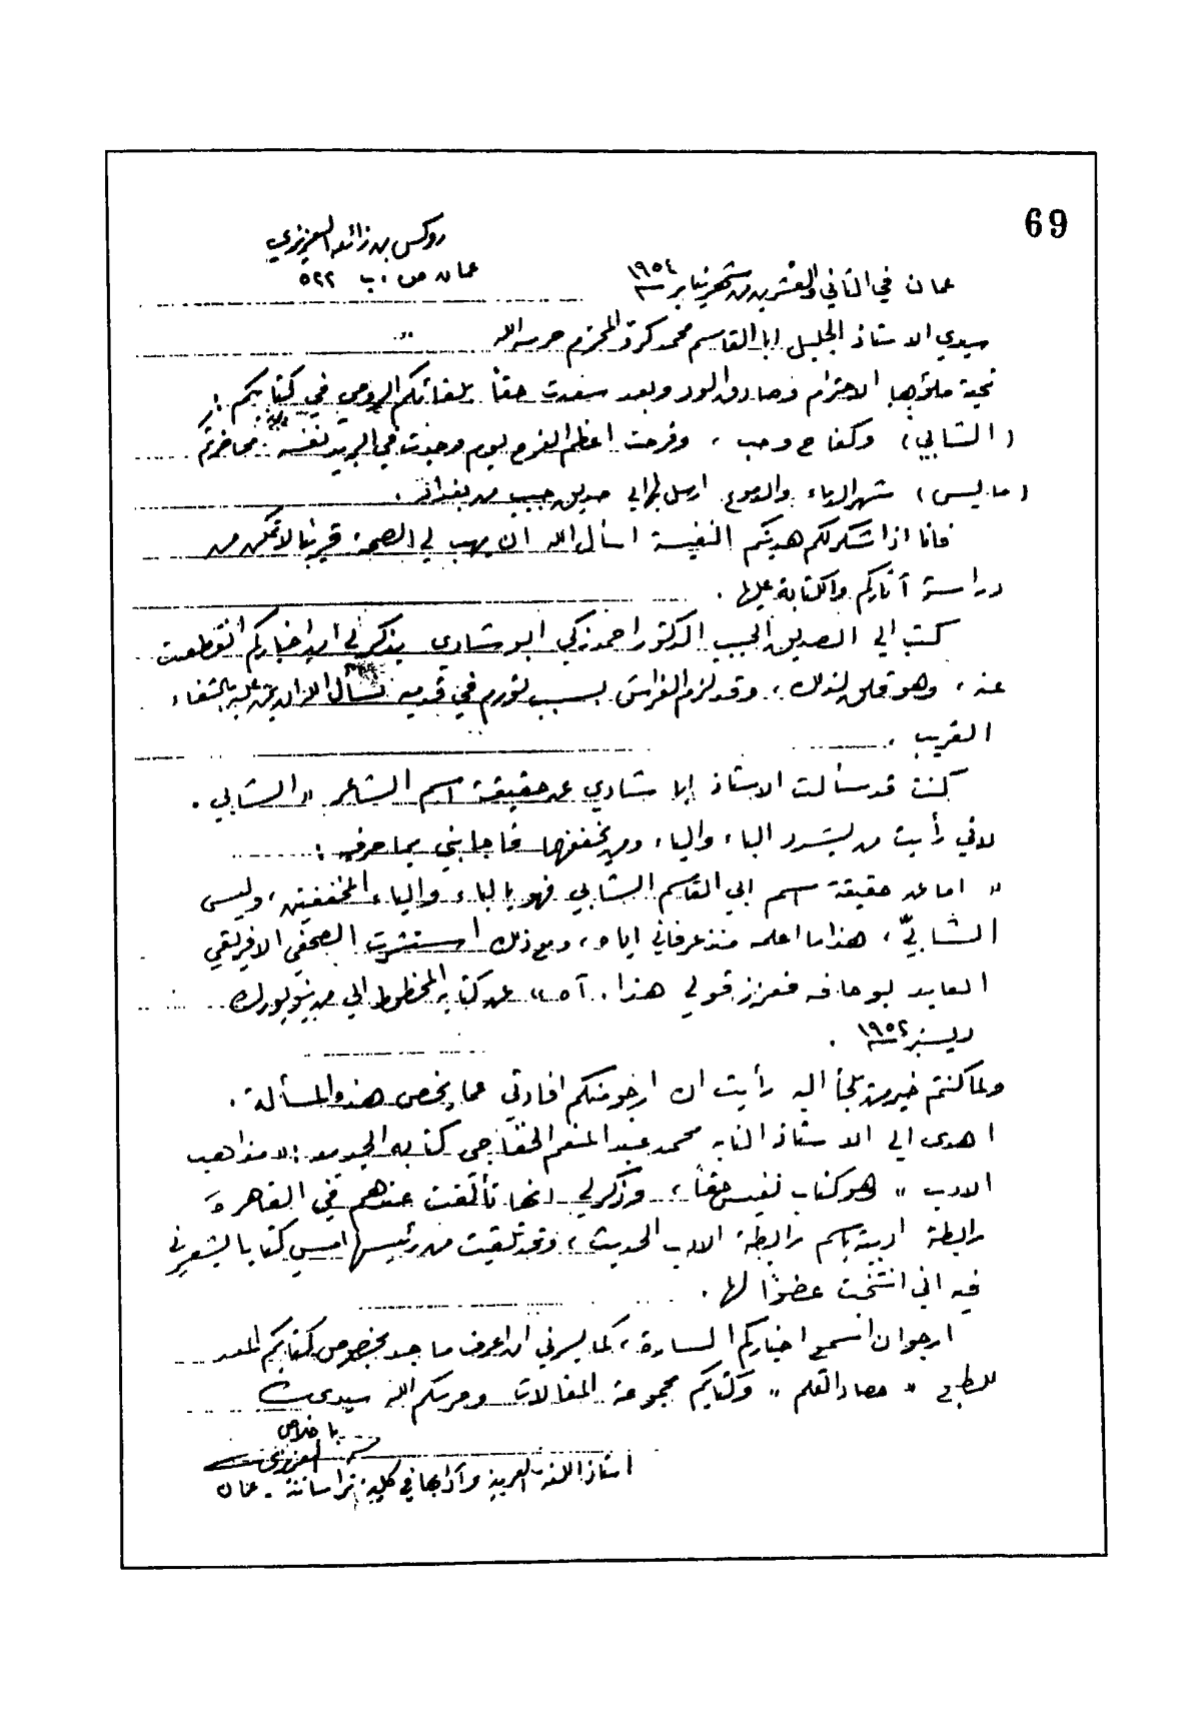 69
روكس بن زائد العزيزي
عمان ص.ب ٥٢٢
عمان في الثاني والعشرين من شهر يناير ١٩٥٤
سيدي الاستاذ الجليل ابا القاسم محمد كرو المحترم حرسه الله
تحية ملؤها الاحترام وصادق الود وبعد سعدت حقاً بلقائكم الروحي في كتابيكم :
(الشابي) وكفاح وحب ، وفرحت اعظم الفرح يوم وجدت في البريد نفسه محاضرتكم
(مارس) شهر الدماء والدموع ارسل بها الي صديق حبيب من بغداد .
فانا اذ اشكر لكم هديتكم النفيسة اسأل الله ان يهب لي الصحة قريبا لاتمكن من
دراسة آثاركم والكتابة عليها .
كتب الي الصديق الحبيب الدكتور احمد زكي ابو شادي يذكر لي ان اخباركم انقطعت
عنه ، وهو قلق لذلك ، وقد لزم الفراش بسبب تورم في قدميه نسأل الله ان يمن عليه بالشفاء
القريب .
كنت قد سألت الاستاذ ابا شادي عن حقيقة اسم الشاعر " الشابي .
لاني رأيت من يشدد الباء والياء ومن يخففها فاجابني بما حرفه :
" اما عن حقيقة اسم ابي القاسم الشابي فهو بالباء والياء المخففتين ، وليس
الشابيّ ، هذا ما اعلمه منذ عرفاني اياه ، ومع ذلك استشرت الصحفي الافريقي
العابد بوحافه فعزز قولي هذا . آه " عن كتابه المخطوط الي من نيويورك
ديسمبر ١٩٥٢ .
ولما كنتم خير من يلجأ اليه رأيت ان ارجو منكم افادتي عما يخص هذه المسألة .
اهدى الي الاستاذ النابه محمد عبد المنعم الخفاجي كتابه الجديد : " مذاهب
الادب " هو كتاب نفيس حقاً ، وذكر لي انها تألفت عندهم في القاهرة
رابطة ادبية باسم رابطة الادب الحديث ، وقد تلقيت من رئيسها امس كتابا يشعرني
فيه اني انتخبت عضوًا لها .
ارجو ان اسمع اخباركم السارة ، كما يسرني ان اعرف ما جد بخصوص كتابكم المعد
للطبع " حصاد القلم " وكتابكم مجموعة المقالات وحرسكم الله سيدي
باخلاص
العزيزي
استاذ اللغة العربية وآدابها في كلية تراسانتة - عمان